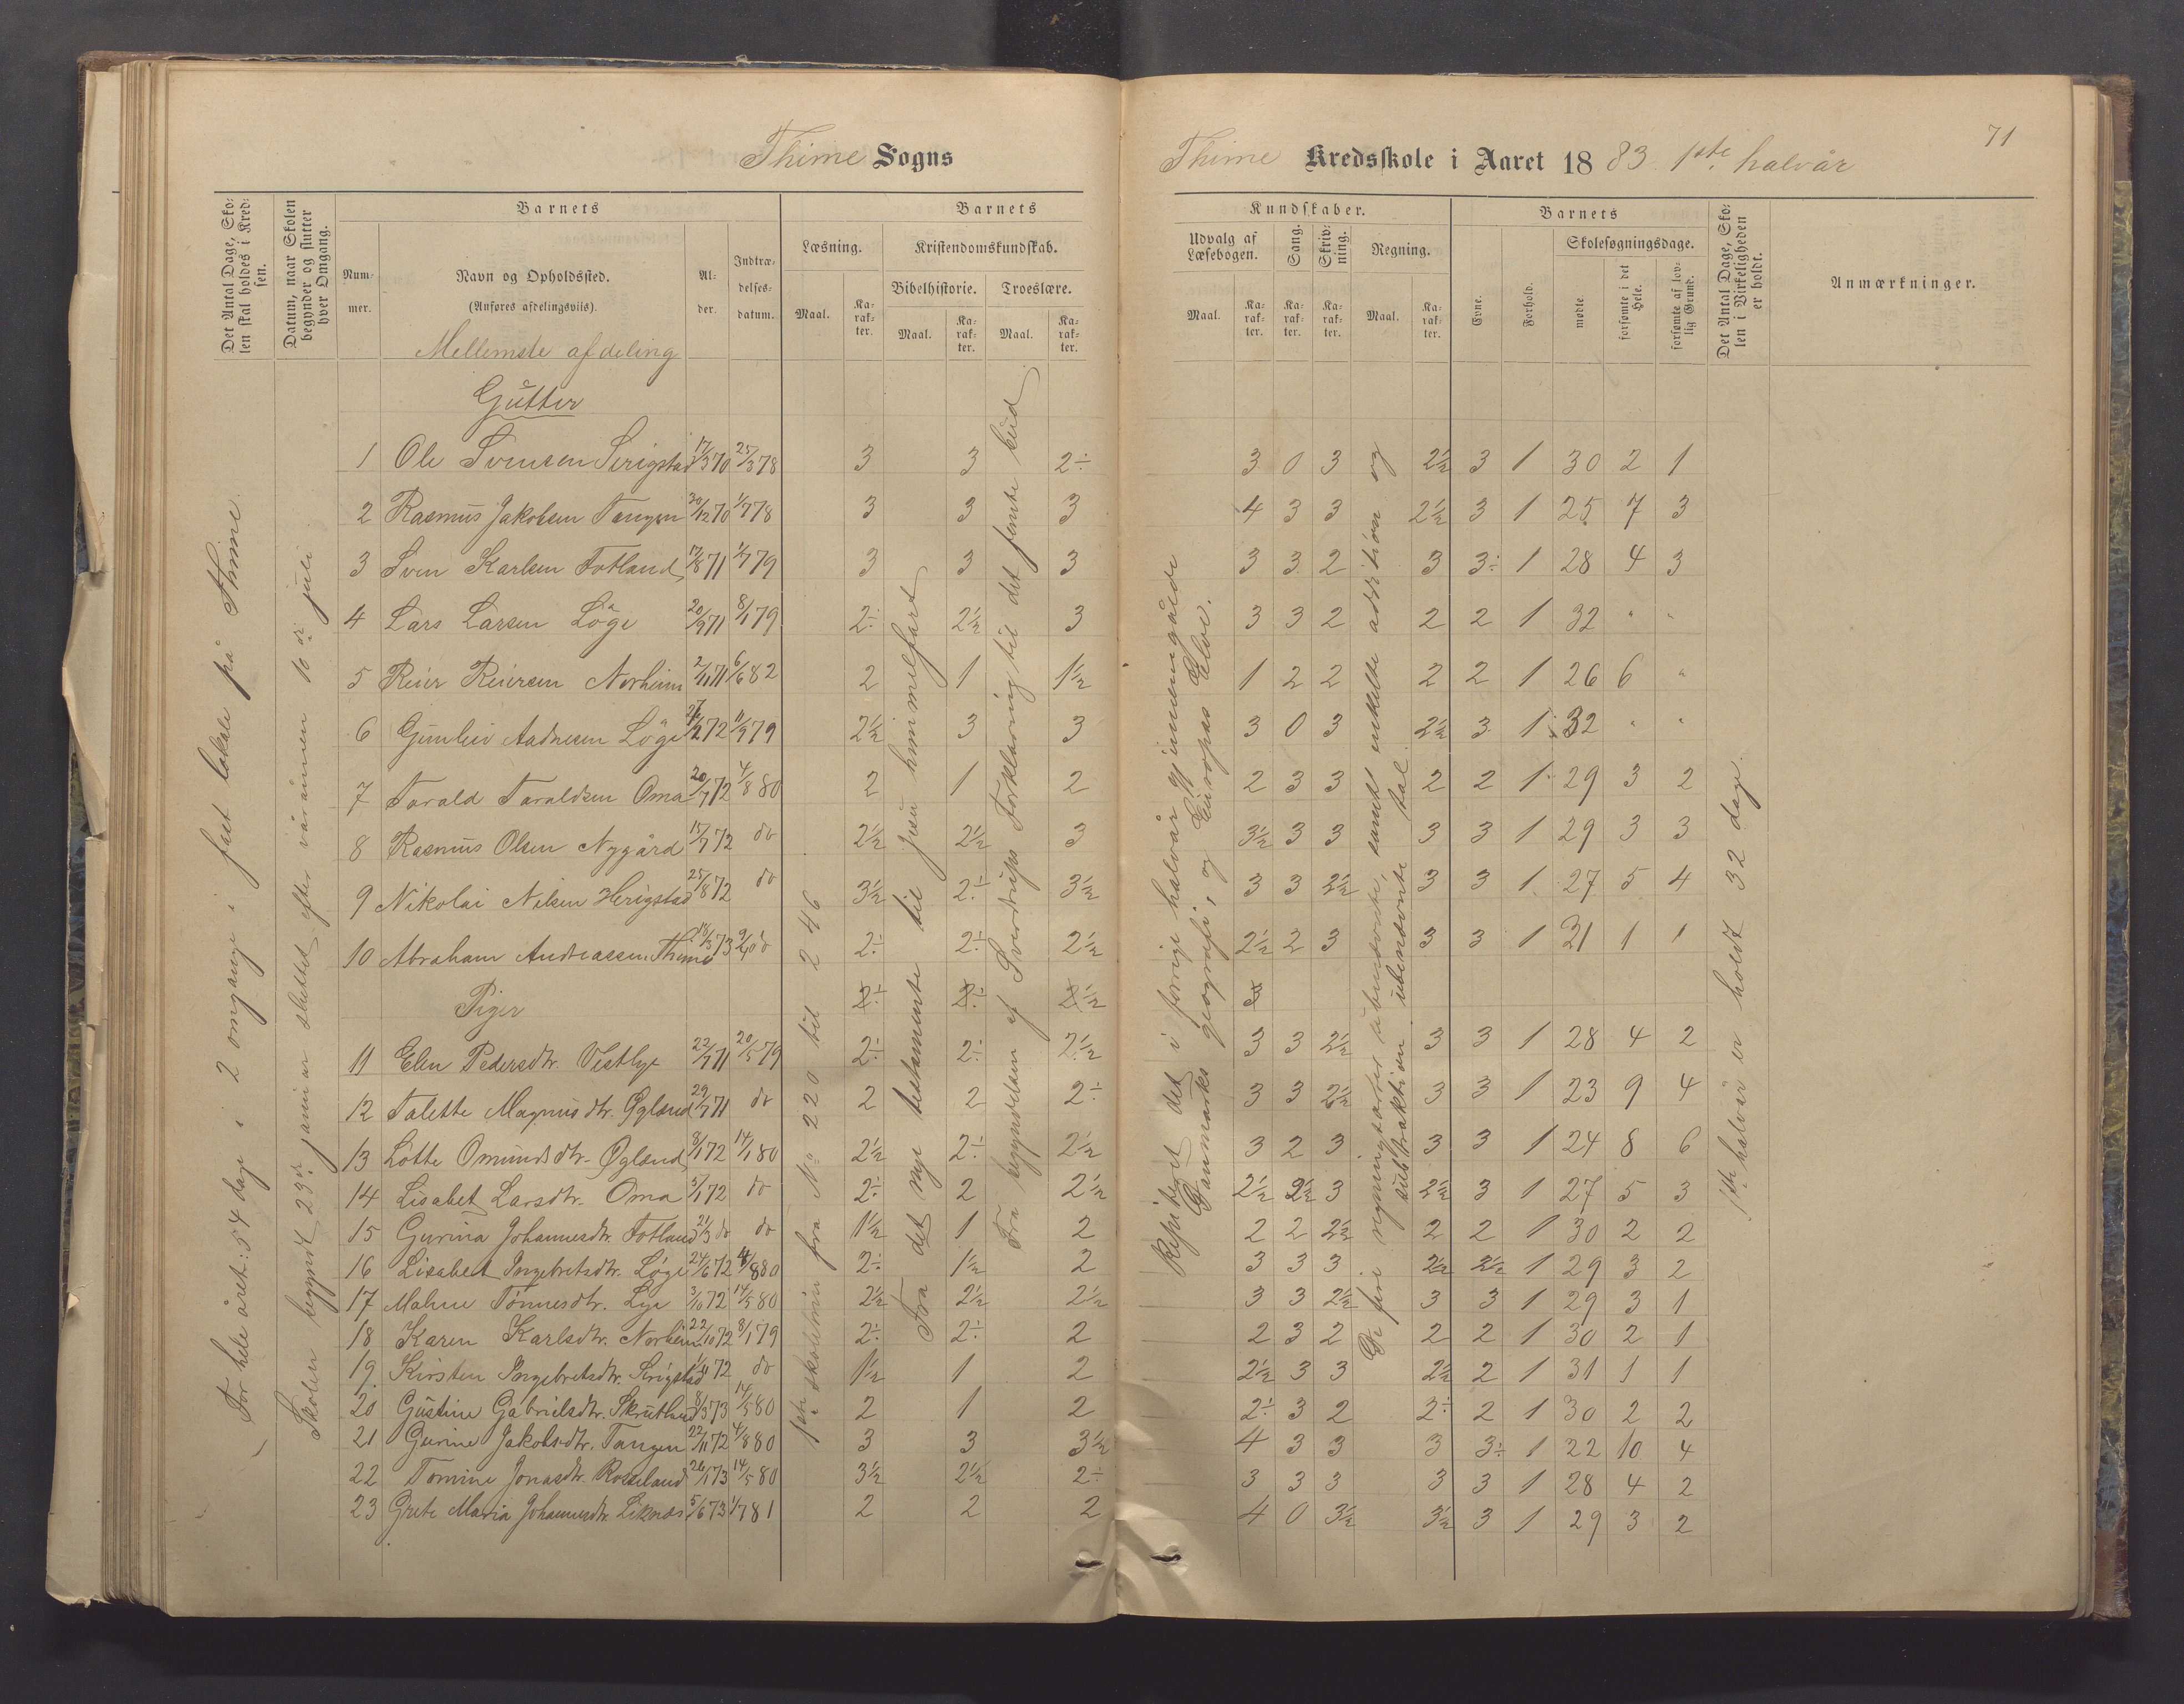 71
Thime Sogns
Thime Kredsskole i Aaret 1883. 1ste halvår
Det Antal Dage, Skolen skal holdes i Kredsen.
Datum, naar Skolen begynder og slutter hver Omgang.
Barnets
Nummer.
Navn og Opholdssted.
(Anføres afdelingsviis).
Alder.
Indtrædelsesdatum.
Barnets
Læsning.
Maal.
Karakter.
Kristendomskundskab.
Bibelhistorie.
Maal.
Karakter.
Troeslære.
Maal.
Karakter.
Kundskaber.
Udvalg af Læsebogen.
Maal.
Karakter.
Sang.
Karakter.
Skrivning.
Karakter.
Regning.
Maal.
Karakter.
Barnets
Evne.
Forhold.
Skolesøgningsdage.
mødte
forsømte i det Hele.
forsømte af lovlig Grund.
Det Antal Dage, Skolen i Virkeligheden er holdt.
Anmærkninger.
For hele året: 54 dage i 2 omgange i fast lokale på Thime.
Skolen begyndt 29de januar sluttet efter våronnen 10de juli
1ste skoletrin fra No 220 til 246
Fra det nye testamente til Jesu himmelfart
Fra begyndelsen af Sverdrups Forklaring til det femte bud
Repiteret det i forrige halvår gjennemgåede
Danmarks geografi, og Europas Elve.
De fire regningsarter i ubenævnte, samt enkelte addition og
subtraktion ubenævnte tal.
1ste halvår er holdt 32 dage.
Mellemste afdeling
Gutter
1 Ole Svensen Serigstad 17/3 70 25/3 78 3 3 2÷ 3 0 3 2½ 3 1 30 2 1
2 Rasmus Jakobsen Tangen 30/12 70 1/7 78 3 3 3 4 3 3 2½ 3 1 25 7 3
3 Sven Karlsen Fotland 17/8 71 1/7 79 3 3 3 3 3 2 3 3÷ 1 28 4 3
4 Lars Larsen Löge 20/9 71 8/1 79 2÷ 2½ 3 3 3 2 2 2 1 32 " "
5 Reier Reiersen Norheim 2/11 71 6/6 82 2 1 1½ 1 2 2 2 2 1 26 6 "
6 Gunleiv Aadnesen Löge 2 72 11/9 79 2½ 3 3 3 0 3 2½ 3 1 32 " "
7 Tarald Taraldsen Oma 20/7 72 4/8 80 2 1 2 2 3 3 2 2 1 29 3 2
8 Rasmus Olsen Nygård 15/7 72 do 2½ 2½ 3 3½ 3 3 3 3 1 29 3 3
9 Nikolai Nilsen Herigstad 25/8 72 do 3½ 2÷ 3½ 3 3 2½ 3 3 1 27 5 4
10 Abraham Andreassen Thime 18/3 73 9/4 do 2÷ 2÷ 2½ 2½ 2 3 3 3 1 31 1 1
Piger
2÷ 2÷ 2½ 3
11 Elen Pedersdtr. Vestlye 22/7 71 20/5 79 2÷ 2÷ 2½ 3 3 2½ 3 3 1 28 4 2
12 Talette Magnusdtr. Øglænd 29/7 71 do 2 2 2÷ 3 3 2½ 3 3 1 23 9 4
13 Lotte Omundsdtr. Øglænd 8/1 72 14/1 80 2½ 2÷ 2½ 3 2 3 3 3 1 24 8 6
14 Lisabet Larsdtr. Oma 3/1 72 do 2÷ 2 2½ 2½ 2½ 3 2½ 3 1 27 5 3
15 Gurina Johannesdtr. Fotland 21/3 do do 1½ 1 2 2 2 2½ 2 2 1 30 2 2
16 Lisabet Ingebretsdtr. Löge 24/6 72 4/8 80 2÷ 1½ 2 3 3 3 2½ 2½ 1 29 3 2
17 Malene Tönnesdtr. Lye 3/10 72 14/5 80 2½ 2½ 2½ 3 3 2½ 3 3 1 29 3 1
18 Karen Karlsdtr. Norheim 22/10 72 8/1 79 2÷ 2÷ 2 2 3 2 2 2 1 30 2 1
19 Kirsten Ingebretsdtr. Serigstad 1/11 72 do 1½ 1 2 2½ 3 3 2½ 2 1 31 1 1
20 Gustine Gabrielsdtr. Skrutland 8/3 73 14/5 80 2 1 2 2÷ 3 2 2÷ 2 1 30 2 2
21 Gurine Jakobsdtr. Tangen 22/11 72 4/8 80 3 3 3½ 4 3 3 3 3÷ 1 22 10 4
22 Tomine Jonasdtr. Rosseland 26/1 73 14/5 80 3½ 2½ 2÷ 3 3 3 3 3 1 28 4 2
23 Grete Maria Johannesdtr. Liknes 5/6 73 1/7 81 2 2 2 4 0 3½ 3½ 3 1 29 3 2